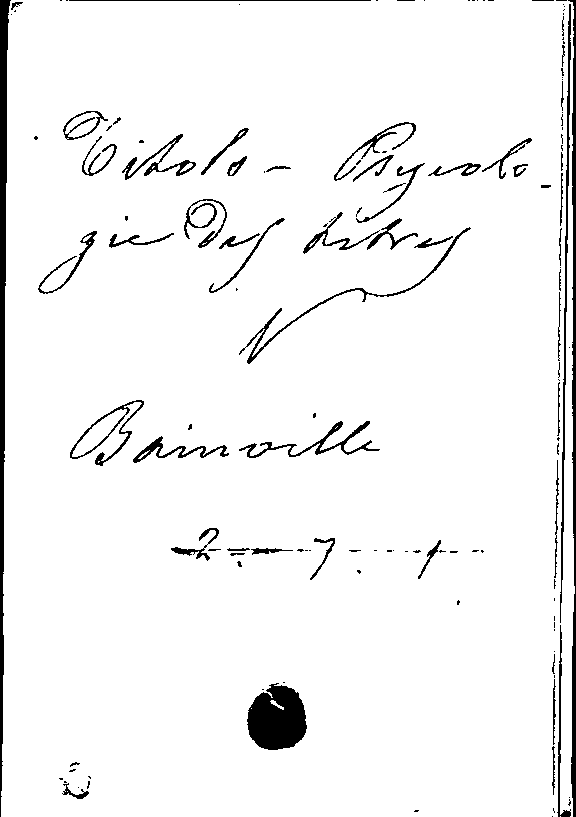 Titolo - Psycolo-
gie Des titres
Bainville
2 - 7 - 1